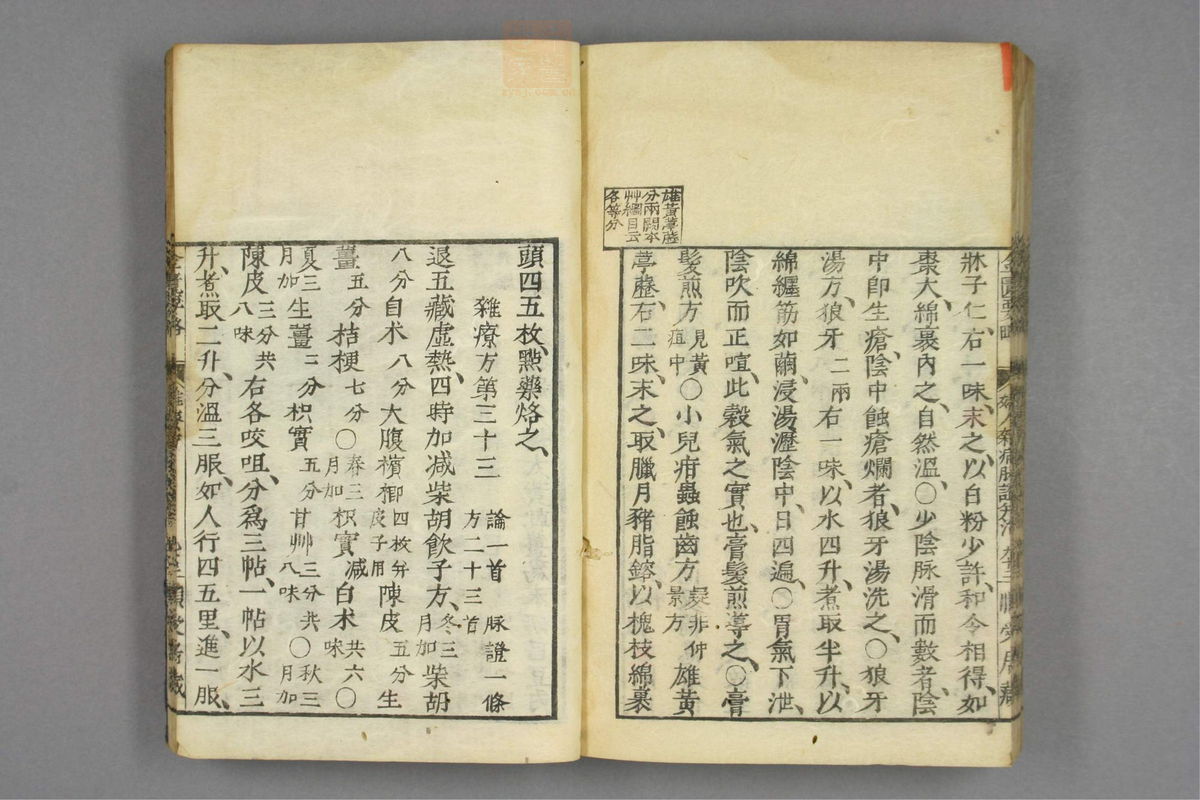 雄黃葶藶
分兩闕本
艸綱目云
各等分
牀子仁、右一味、末之、以白粉少許、和令相得、如
棗大、綿裹內之、自然溫、〇少陰脉滑而數者、陰
中卽生瘡、陰中蝕瘡爛者、狼牙湯洗之、〇狼牙
湯方、狼牙二兩右一味、以水四升、煮取半升、以
綿纏筋如繭、浸湯、瀝陰中、日四遍、〇胃氣下泄、
陰吹而正喧、此穀氣之實也、膏髮煎導之、〇膏
髮煎方見黃疸中〇小兒疳蟲蝕齒方疑非仲景方雄黃
葶藶、右二味、末之、取臘月豬脂鎔、以槐枝綿裹
頭四五枚、點藥烙之、
雜療方第三十三 論一首 脉證一條 方二十三首
退五藏虛熱、四時加減柴胡飲子方、冬三月加柴胡
八分白术八分大腹檳榔四枚并皮子用陳皮五分生
薑五分桔梗七分〇春三月加枳實减白术共六味〇
夏三月加生薑三分枳實五分甘艸三分共八味〇秋三月加
陳皮三分共八味右各㕮咀、分爲三帖、一帖以水三
升、煮取二升、分溫三服、如人行四五里、進一服、